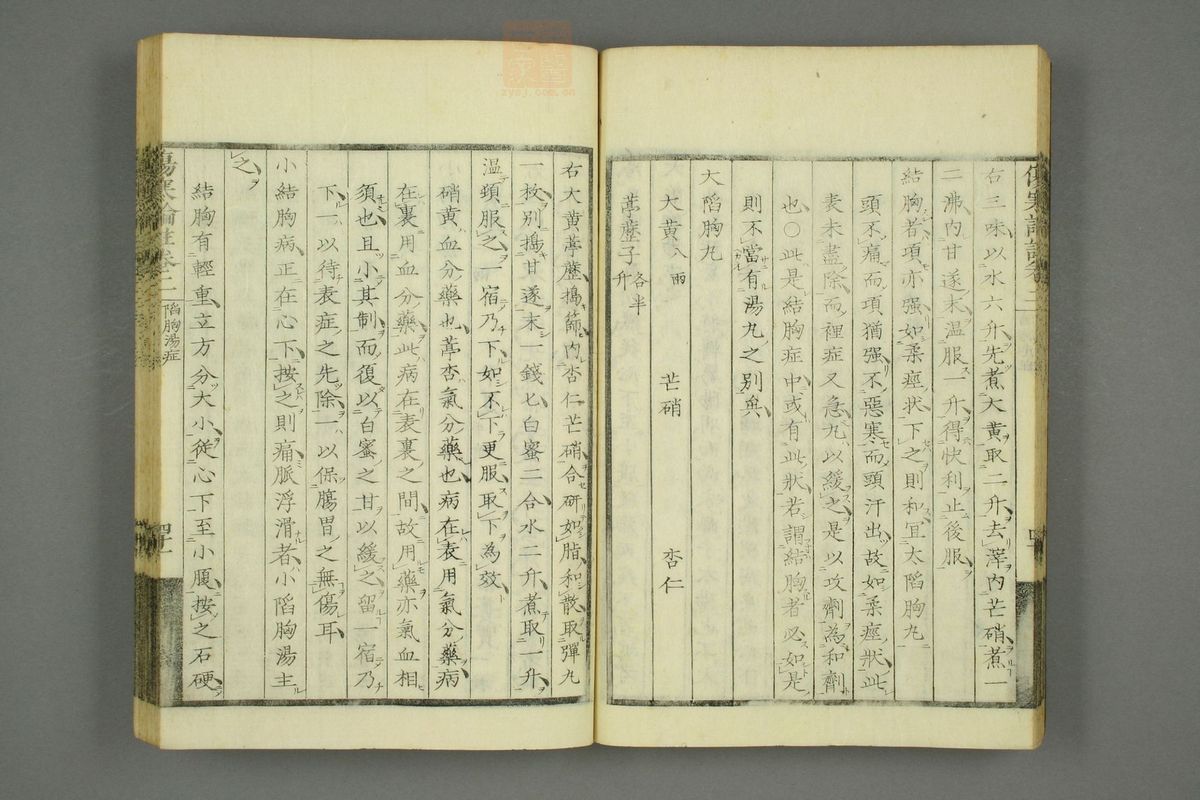 右三味以水六升先煮大黃取二升去滓內芒硝煮一
二沸內甘遂末温服一升得快利止後服
結胸者項亦强如柔痙狀下之則和冝大陷胸丸
頭不痛而項猶强不惡寒而頭汗出故如柔痙狀此
表未盡除而裡症又急丸以緩之是以攻劑為和劑
也〇此是結胸症中或有此狀若謂結胸者必如是
則不當有湯丸之别矣
大陷胸丸
大黃八兩 芒硝 杏仁
葶藶子各半升
右大黃葶藶搗篩內杏仁芒硝合研如脂和散取彈丸
一枚别搗甘遂末一錢匕白蜜二合水二升煮取一升
温頓服之一宿乃下如不下更服取下為效
硝黃血分藥也葶杏氣分藥也病在表用氣分藥病
在裏用血分藥此病在表裏之間故用藥亦氣血相
須也且小其制而復以白蜜之甘以緩之留一宿乃
下一以待表症之先除一以保腸胃之無傷耳
小結胸病正在心下按之則痛脈浮滑者小陷胸湯主
之
結胸有輕重立方分大小從心下至小腹按之石硬
傷寒論註卷二 陷胸湯症 四十一
zysj.com.cn